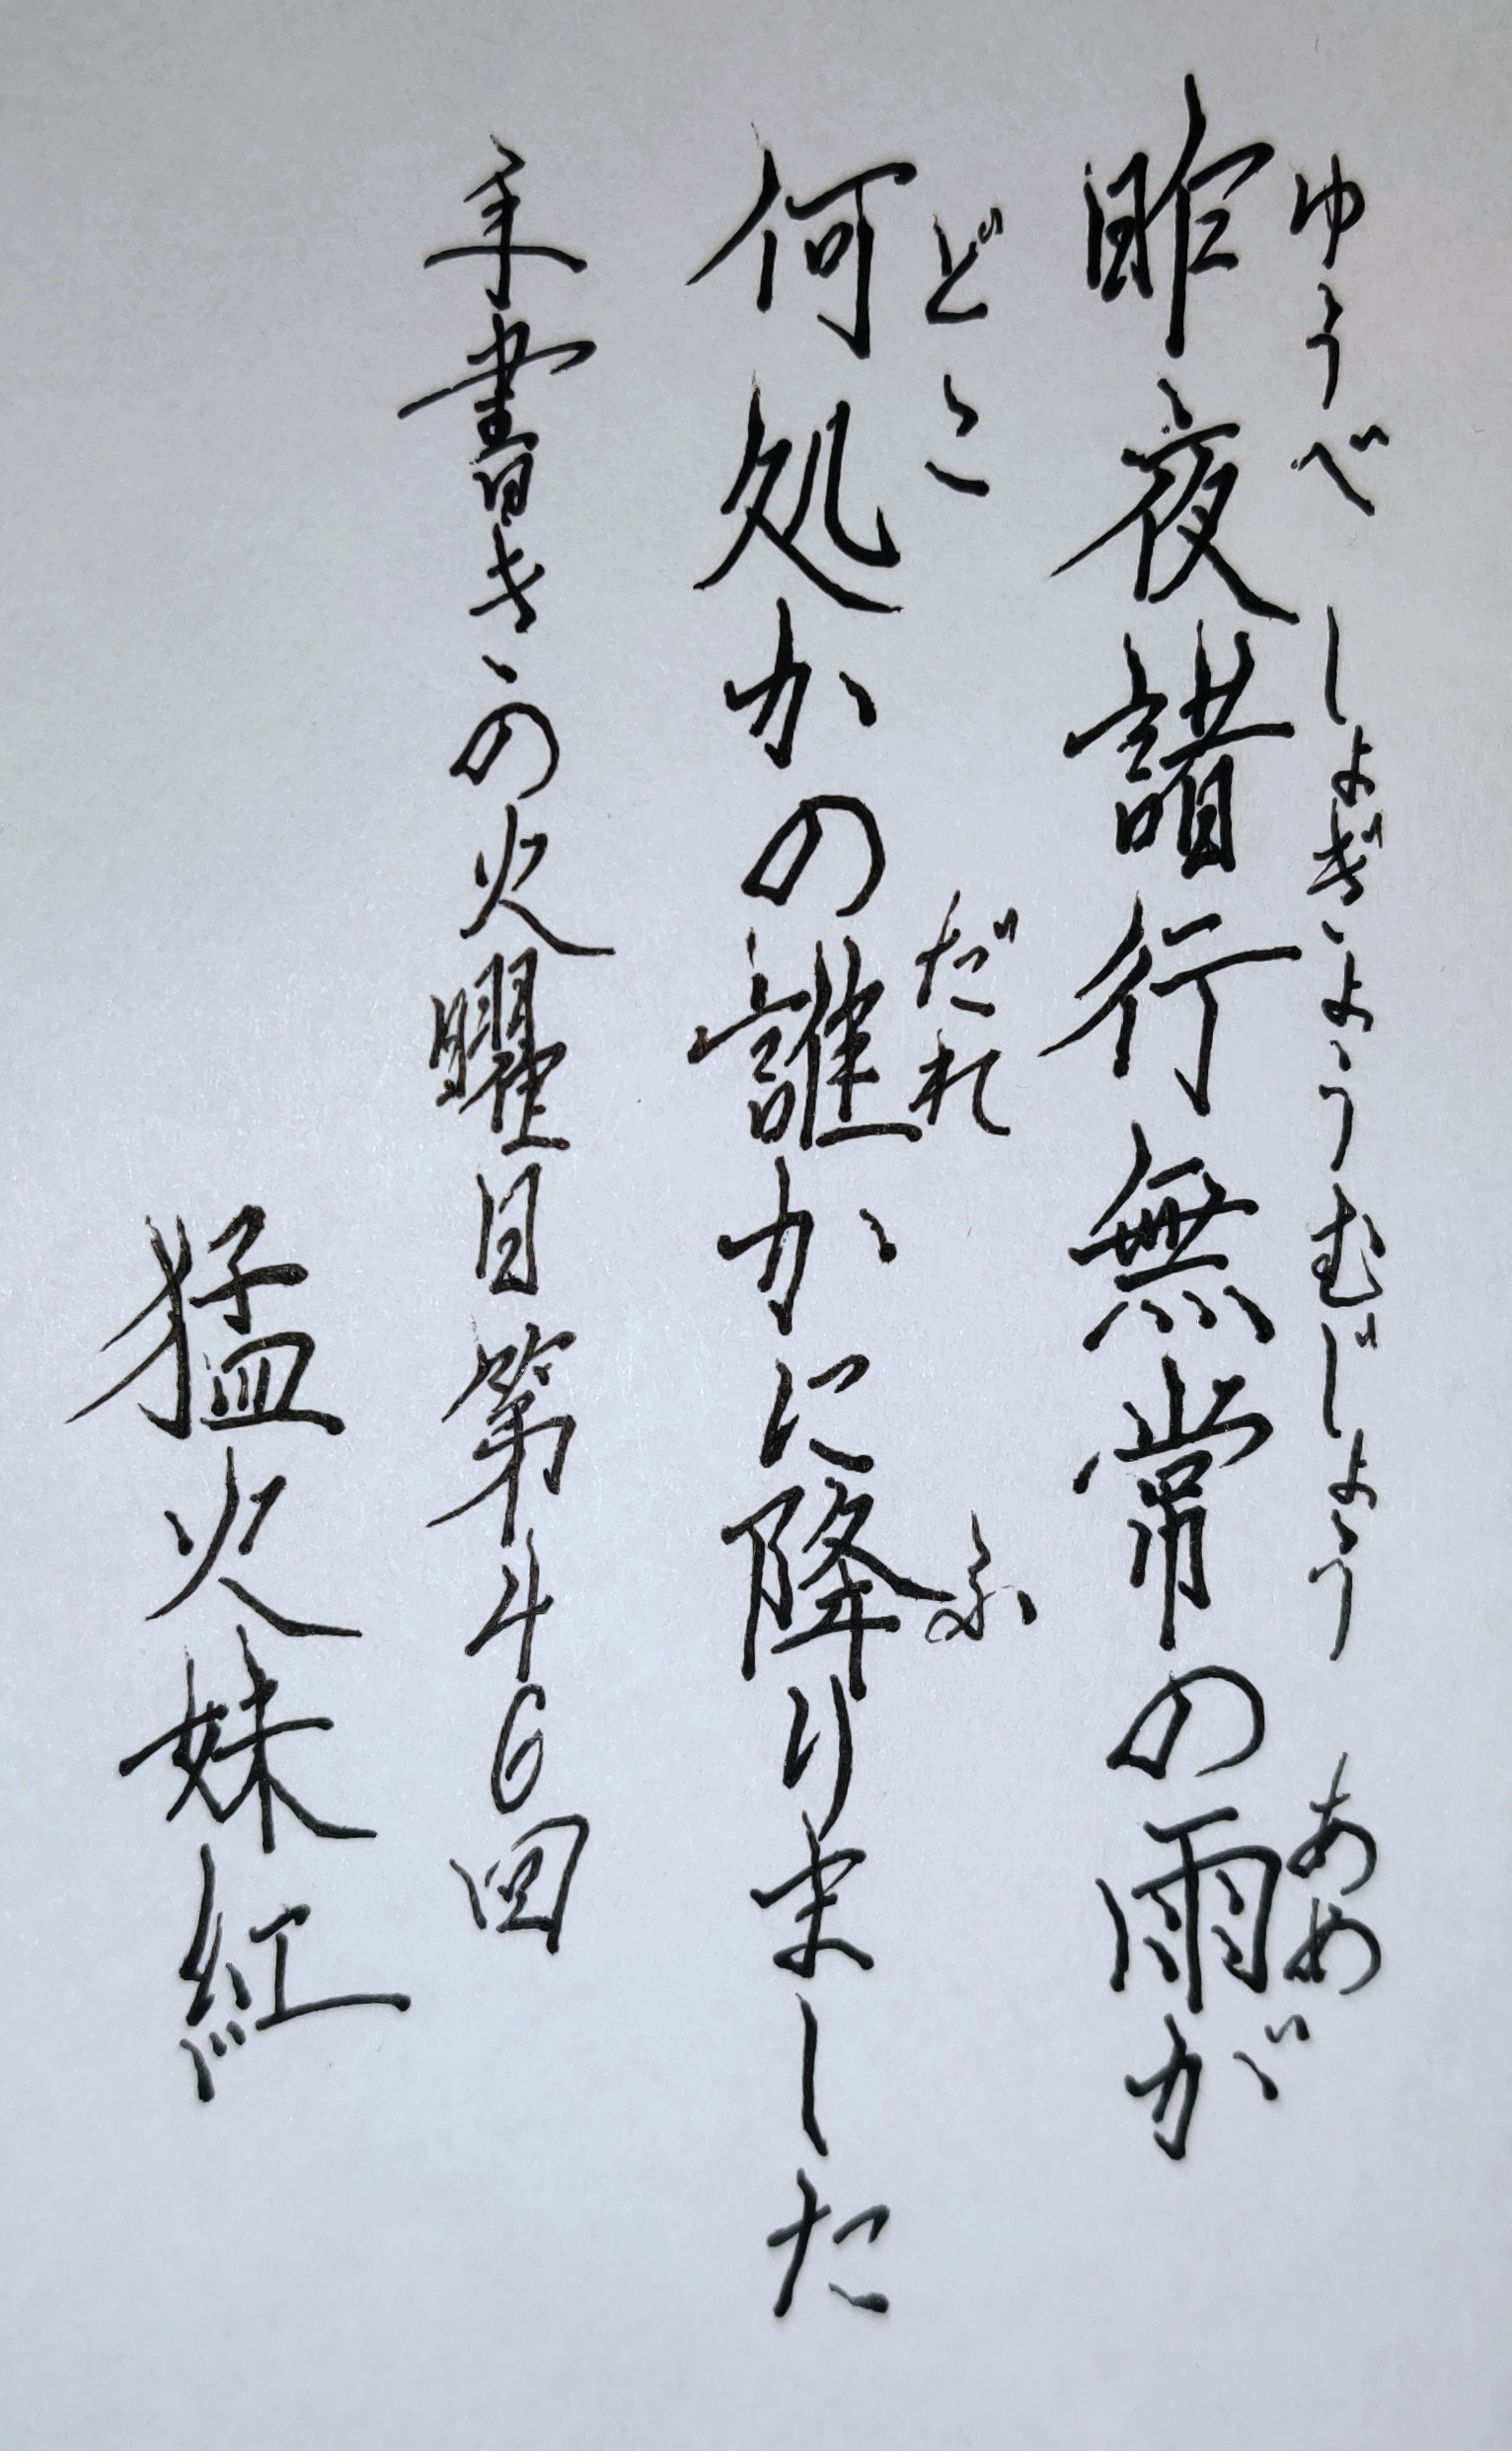 ゆうべ しょぎょうむじょう あめ
昨夜諸行無常の雨が
どこ だれ ふ
何処かの誰かに降りました
手書きの火曜日第46回
猛火妹紅